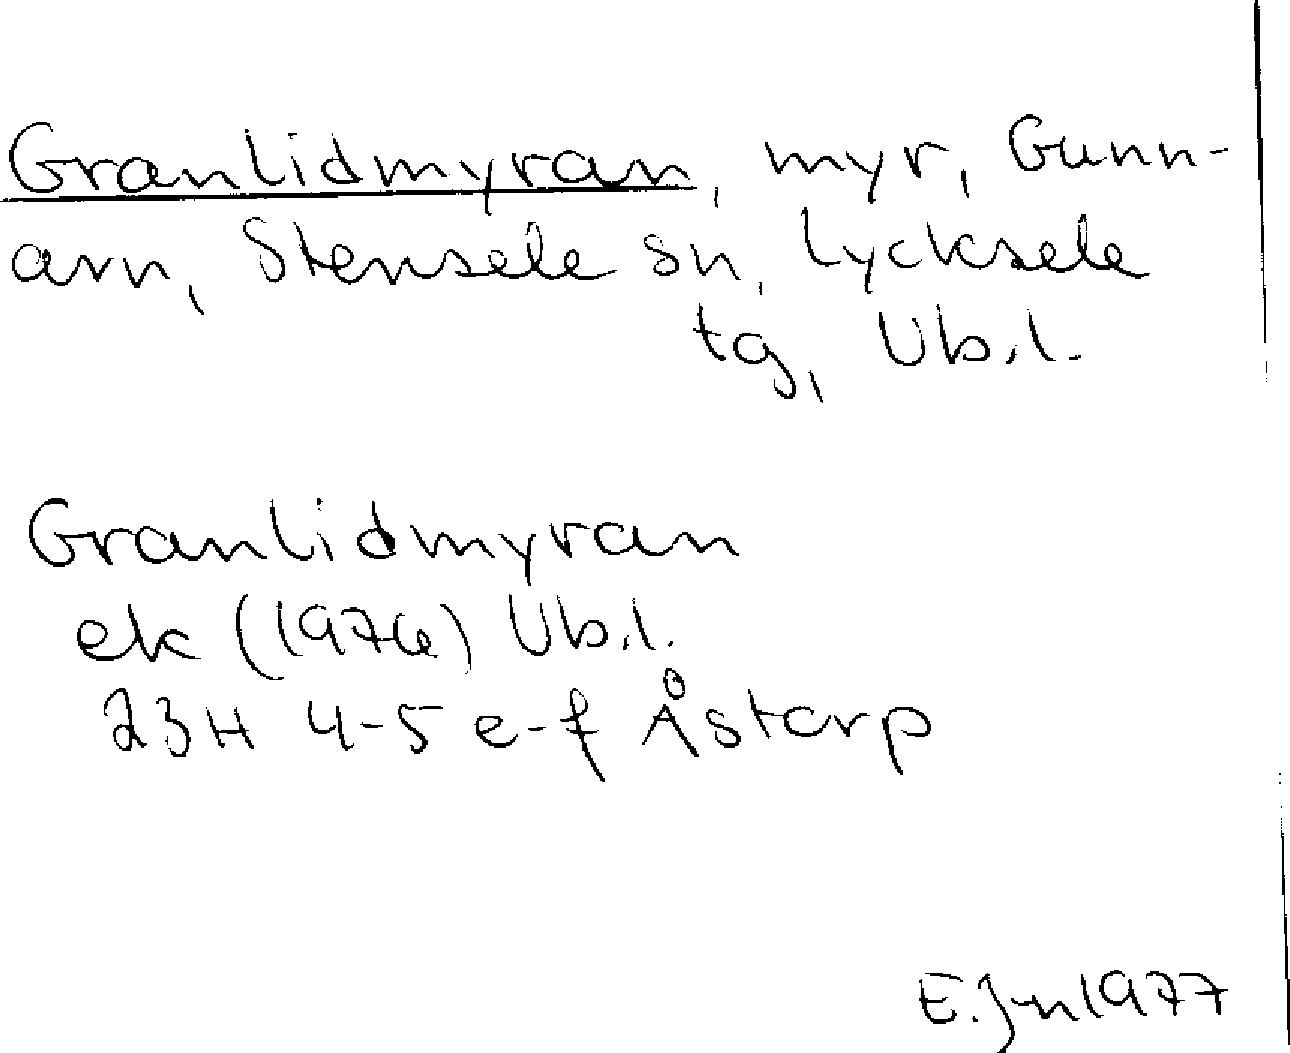 Granlidmyran, myr, Gunn-
arn, Stensele sn, Lycksele
tg, Vb.l.
Granlidmyran
ek (1976) Vb.l.
23H 4-5 e-f Åstorp
E. Jn 1977